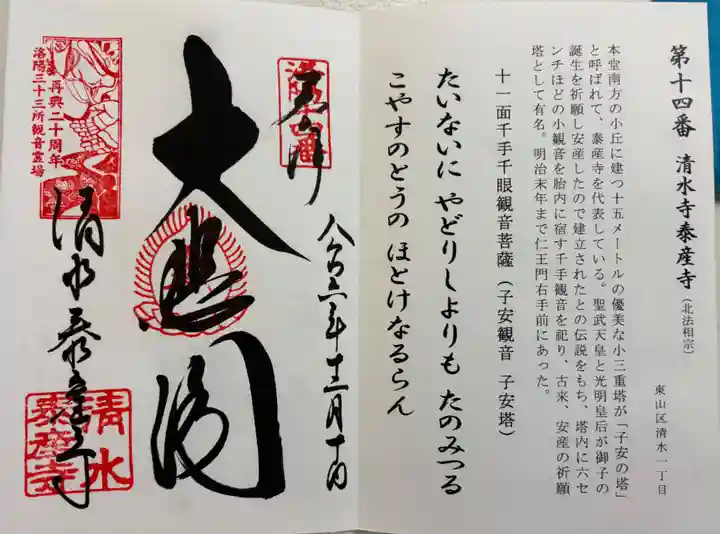 第十四番 清水寺泰産寺(北法相宗)
東山区清水一丁目
本堂南方の小丘に建つ十五メートルの優美な小三重塔が「子安の塔」
と呼ばれて、泰産寺を代表している。聖武天皇と光明皇后が御子の
誕生を祈願し安産したので建立されたとの伝説をもち、塔内に六セ
ンチほどの小観音を胎内に宿す千手観音を祀り、古来、安産の祈願
塔として有名。明治末年まで仁王門右手前にあった。
十一面千手千眼観音菩薩(子安観音 子安塔)
たいないに やどりしよりも たのみつる
こやすのとうの ほとけなるらん
洛陽十四番
奉拝
令和六年十二月十日
大悲閣
再興二十周年
洛陽三十三所観音霊場
清水泰産寺
清水
泰産寺